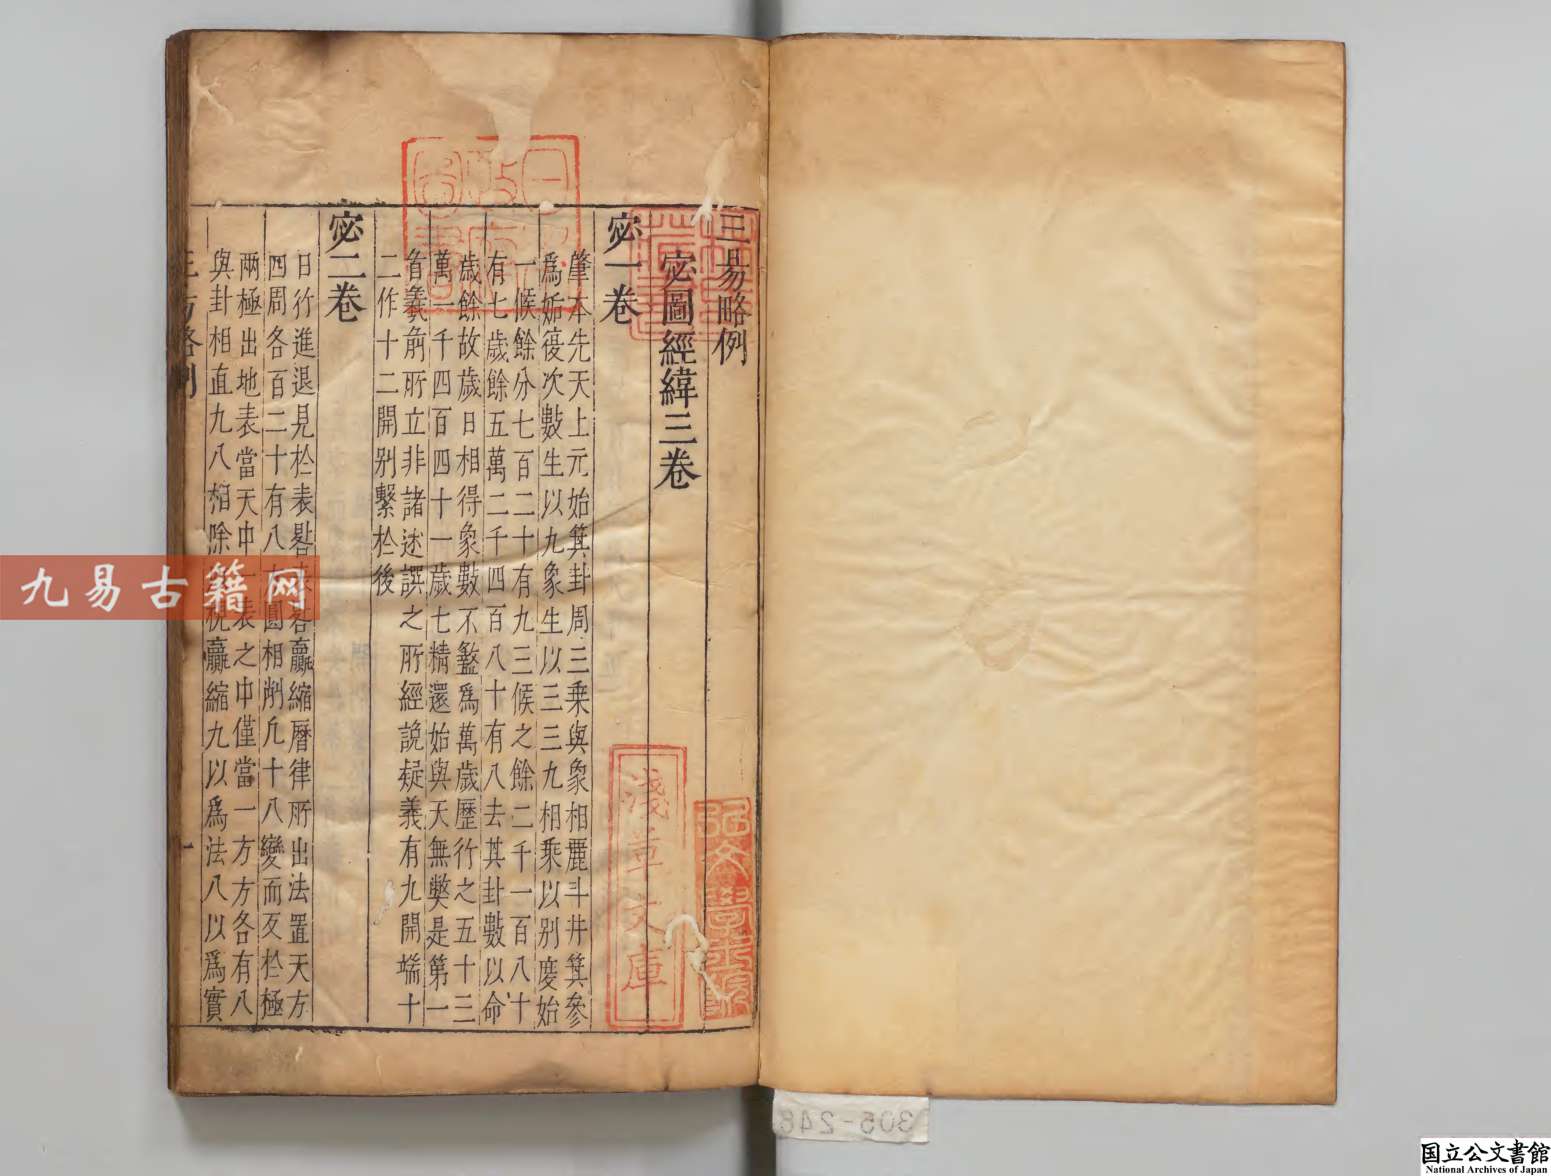 三易略例
宓圖經緯三卷
宓一卷
肇本先天上元始箕卦周三乗與象相麗斗井箕參
爲姤復次數生以九象生以三三九相乘以別慶始
一候餘分七百二十有九三候之餘二千一百八十
有七歲餘五萬二千四百八十有八去其卦數以命
歲餘故歲日相得象數不盭爲萬歲歷行之五十三
萬一千四百四十一歲七精還始與天無弊是第一
㫺羲前所立非諸述譔之所經說疑義有九開端十
二作十二開別繫於後
宓二卷
日行進退見於表晷
晷贏縮曆律所出法置天方
四周各百二十有八
圓相削凡十八變而反於極
兩極出地表當天中一表之中僅當一方方各有八
與卦相直九八相除
贏縮九以爲法八以爲實
一
淺草文庫
弘文學士院
九易古籍网
305-248
国立公文書館
National Archives of Japan